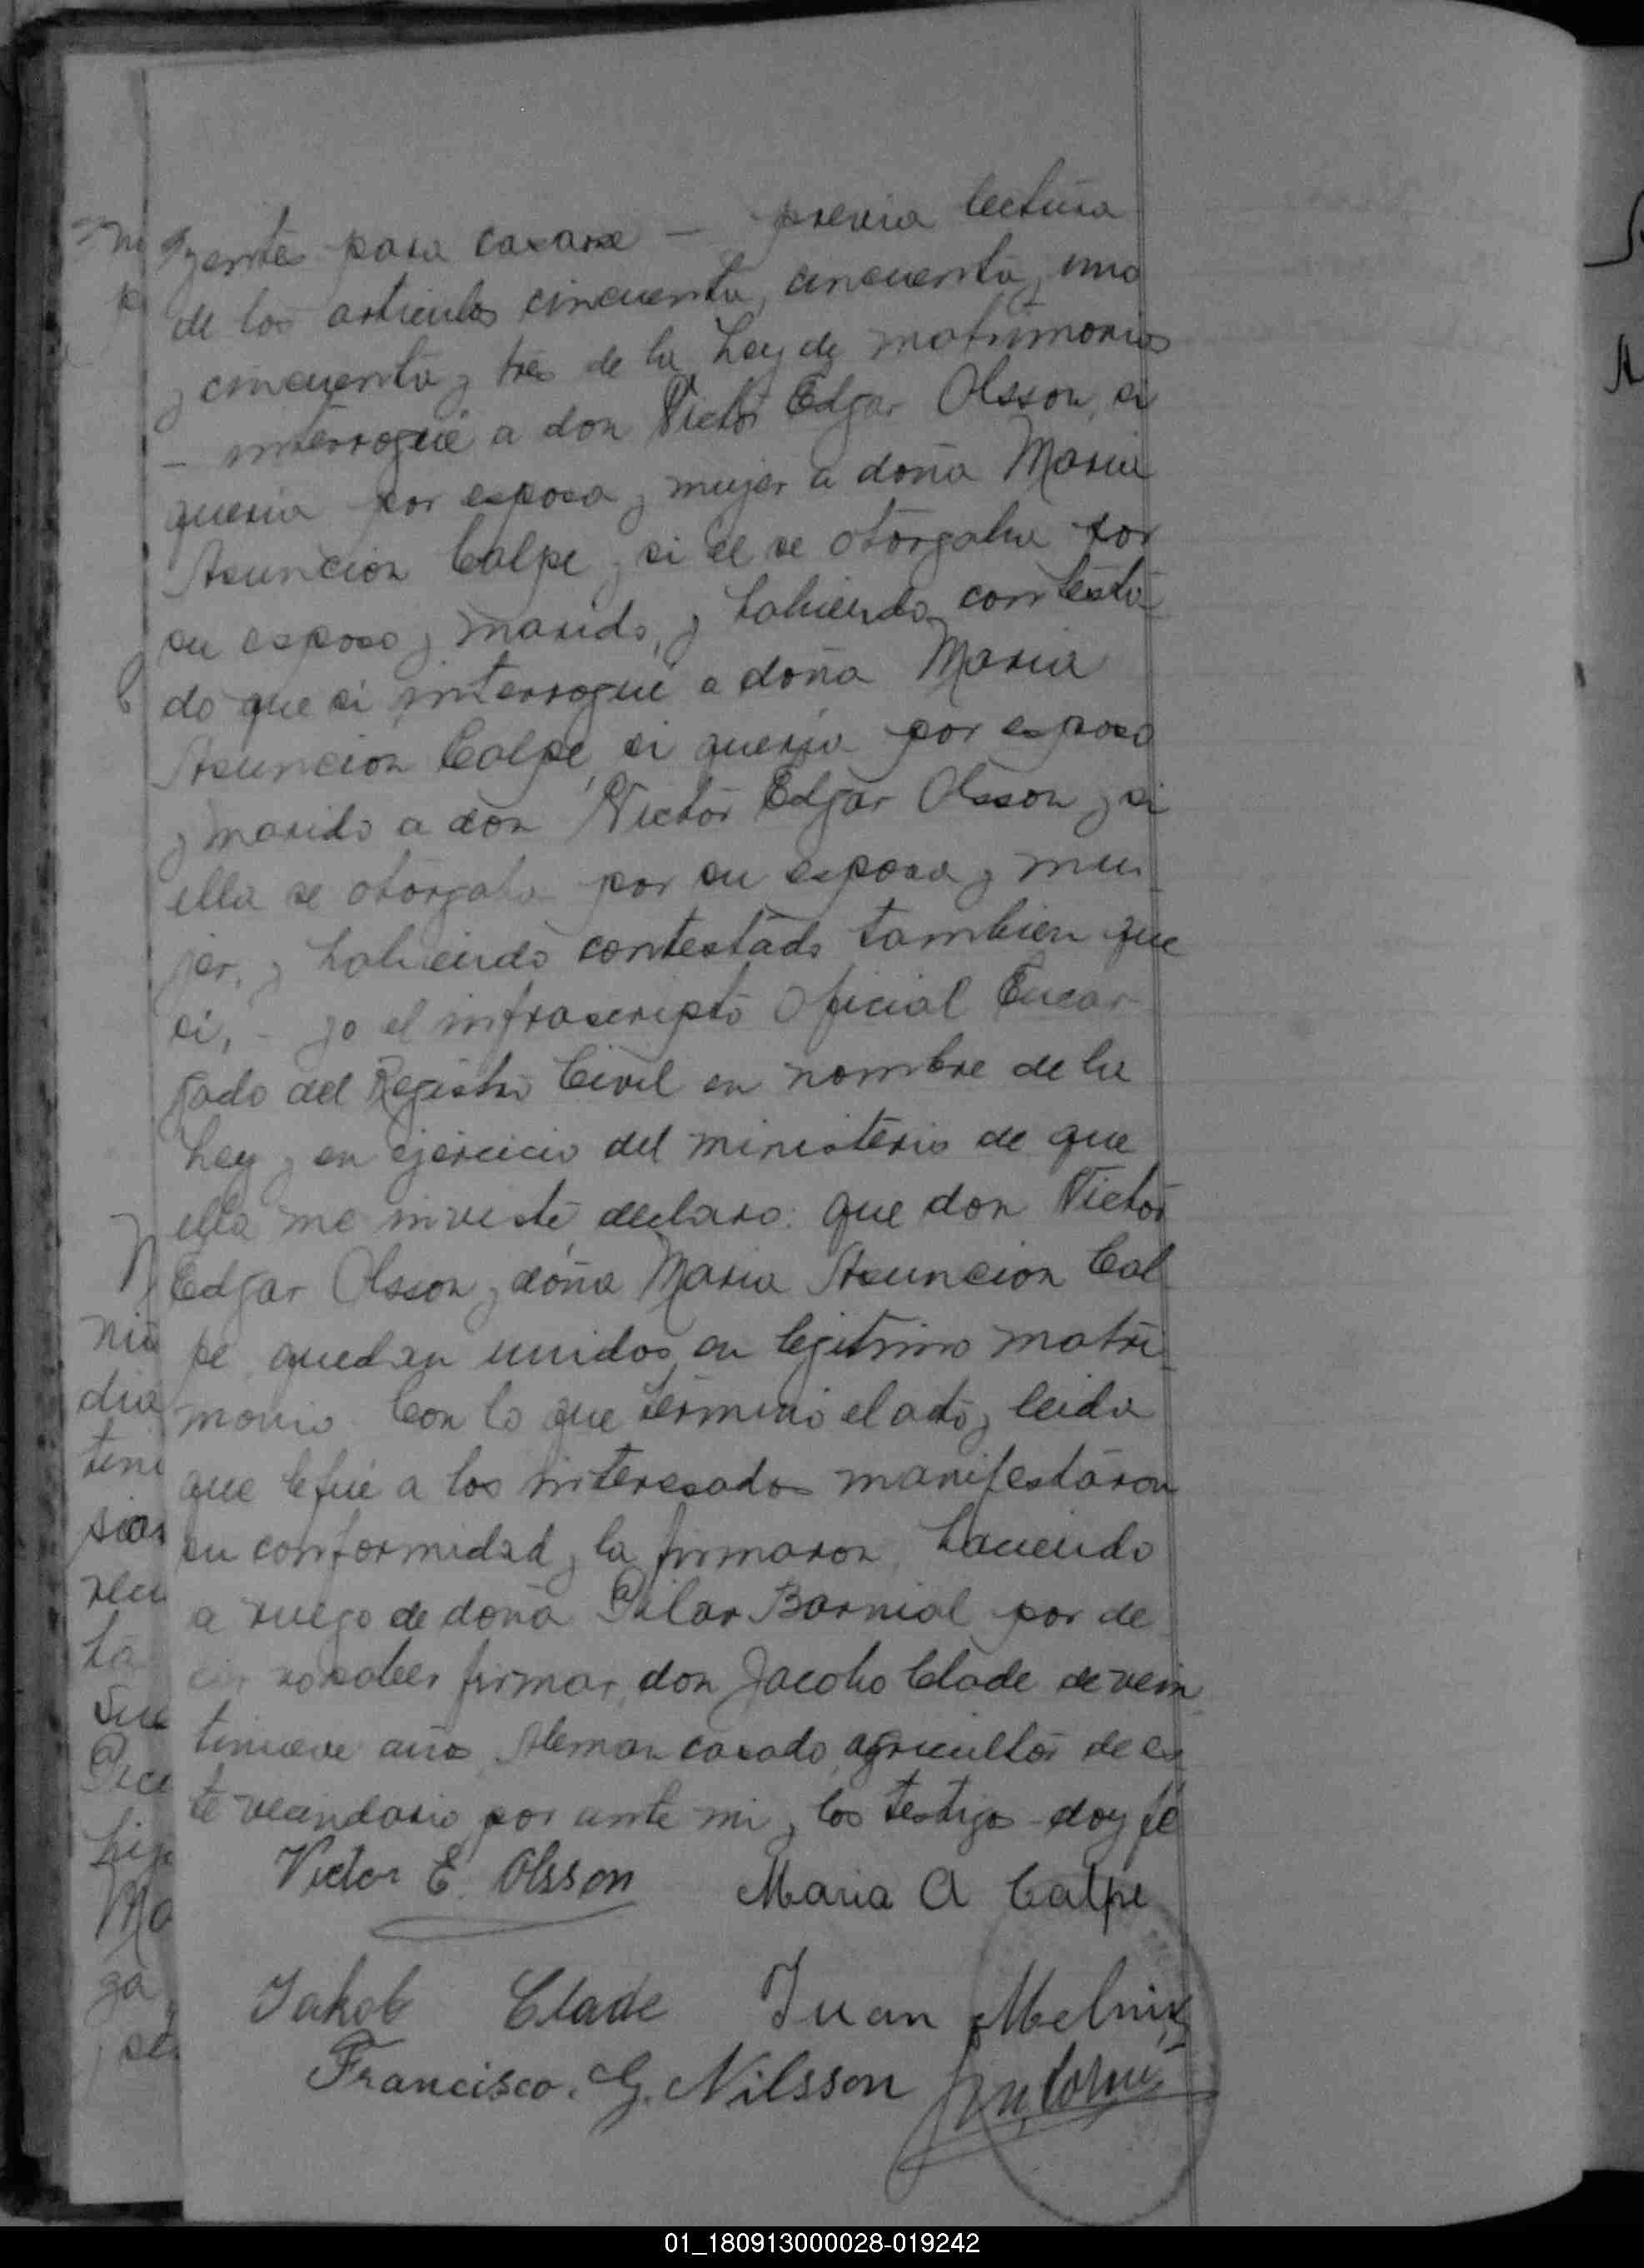 yentes para casarse — previa lectura
de los articulos cincuenta, cincuenta y uno
y cincuenta y tres de la Ley de matrimonios
— interrogué a don Victor Edgar Olsson, si
queria por esposa y mujer a doña Maria
Asuncion Calpe y si el se otorgaba por
su esposo y marido, y habiendo contesta-
do que si interrogué a doña Maria
Asuncion Calpe, si queria por esposo
y marido a don Victor Edgar Olsson y si
ella se otorgaba por su esposa y mu-
jer, y habiendo contestado tambien que
si, - yo el infrascripto Oficial Encar-
gado del Registro Civil en nombre de la
Ley y en ejercicio del ministerio de que
ella me inviste, declaro: que don Victor
Edgar Olsson y doña Maria Asuncion Cal
pe, quedan unidos en legitimo matri-
monio. Con lo que terminó el acto y leida
que le fué a los interesados manifestaron
su conformidad y la firmaron, haciendo
a ruego de doña Pilar por de
cir no saber firmar, don Jacobo Clade de vein
tinueve años, Aleman casado, agricultor de es
te vecindario por ante mi y los testigos - doy fé
Victor E. Olsson Maria A Calpe
Jakob Clade Juan
Francisco. G. Nilsson
01_180913000028-019242